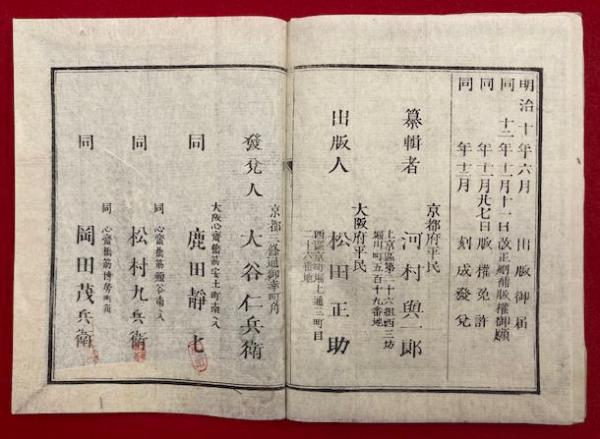 明治十年六月 出版御届
同 十二年十二月十一日改正増補版權御願
同 年十二月廿七日版權免許
同 年十二月 刻成發兌
纂輯者
京都府平民
河村與一郎
上京區第二十六組西三坊
堀川町五百十九番地
出版人
大阪府平民
松田正助
西區京町堀上通三町目
二十六番地
發兌人
京都三條通御幸町角
大谷仁兵衛
同
大阪心齋橋筋安土町南ヘ入
鹿田靜七
同
同 心齋橋筋
松村九兵衛
同
同 心齋橋筋博勞町角
岡田茂兵衛